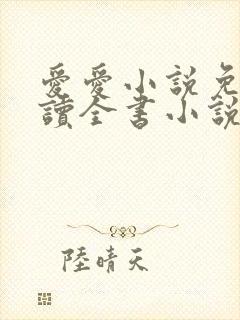 愛愛小說免
讀全書小說
陸晴天